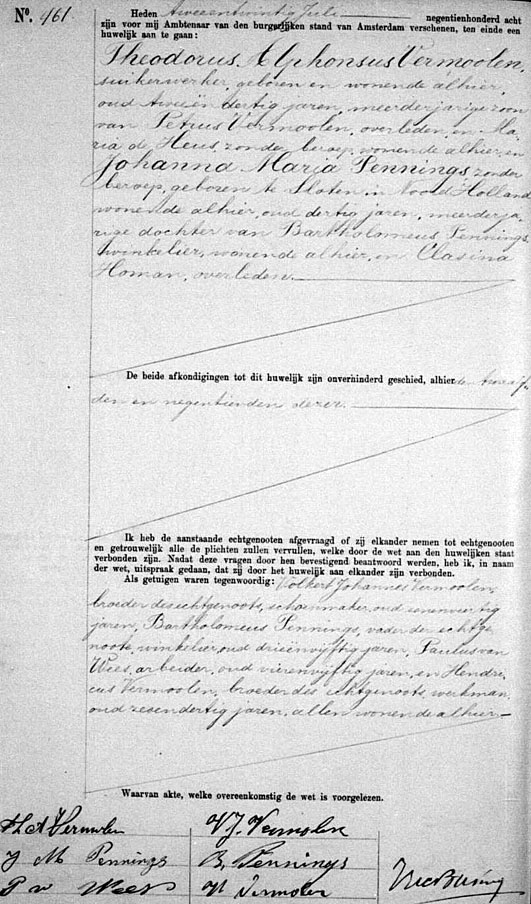 No. 461.
Heden tweeentwintig Juli negentienhonderd acht
zijn voor mij Ambtenaar van den burgerlijken stand van Amsterdam verschenen, ten einde een
huwelijk aan te gaan:
Theodorus Alphonsus Vermoolen,
suikerwerker, geboren en wonende alhier,
oud tweeën dertig jaren, meerderjarige zoon
van Petrus Vermoolen, overleden, en Ma
ria de Heus, zonder beroep, wonende alhier, en
Johanna Maria Pennings, zonder
beroep, geboren te Sloten in Noord Holland
wonende alhier, oud dertig jaren, meerderja
rige dochter van Bartholomeus Pennings,
winkelier, wonende alhier, en Clasina
Homan, overleden.
De beide afkondigingen tot dit huwelijk zijn onverhinderd geschied, alhier den twaalf
den en negentienden dezer.
Ik heb de aanstaande echtgenooten afgevraagd of zij elkander nemen tot echtgenooten
en getrouwelijk alle de plichten zullen vervullen, welke door de wet aan den huwelijken staat
verbonden zijn. Nadat deze vragen door hen bevestigend beantwoord werden, heb ik, in naam
der wet, uitspraak gedaan, dat zij door het huwelijk aan elkander zijn verbonden.
Als getuigen waren tegenwoordig: Volkert Johannes Vermoolen,
broeder des echtgenoots, schoenmaker, oud zevenveertig
jaren, Bartholomeus Pennings, vader der echtge
noote, winkelier, oud drieënvijftig jaren, Paulus van
Wees, arbeider, oud vierenvijftig jaren, en Hendri
cus Vermoolen, broeder des echtgenoots, werkman,
oud zesendertig jaren, allen wonende alhier
Waarvan akte, welke overeenkomstig de wet is voorgelezen.
Th A Vermolen V J. Vermolen
J M Pennings B. Pennings
P v Wees H Vermolen